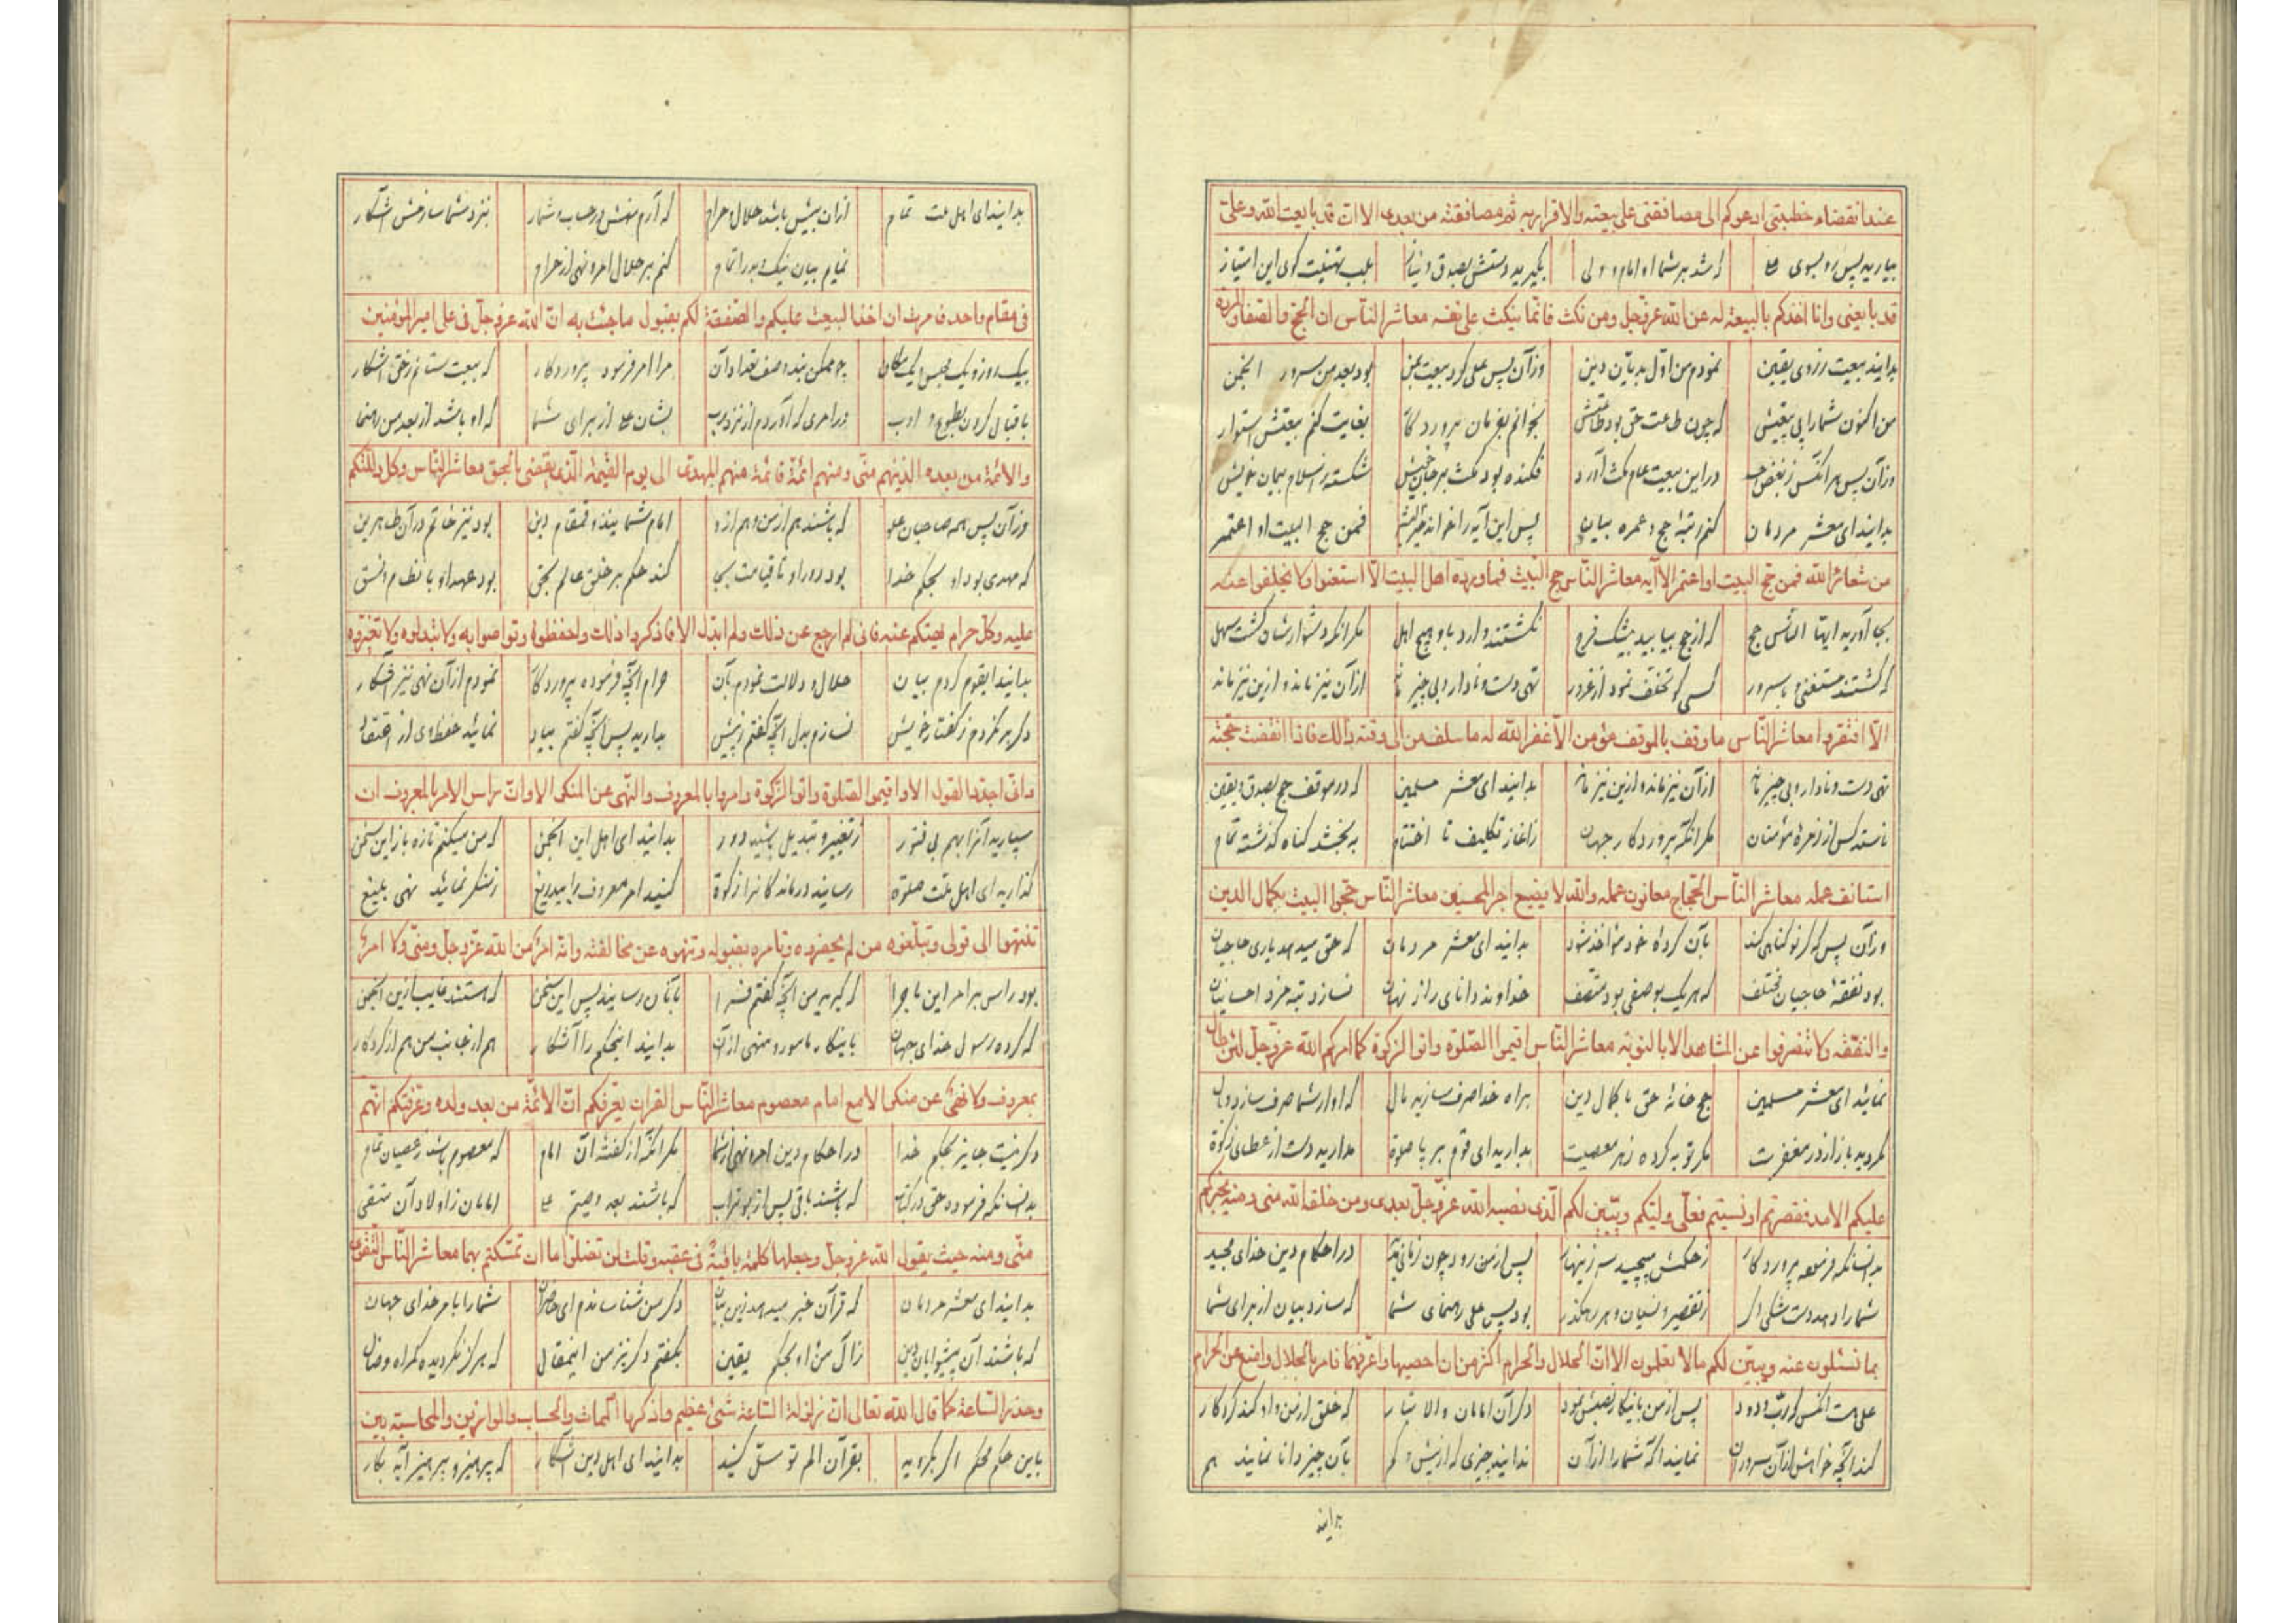 عند انقضاء خطبتی ادعوکم الی مصافقتی علی بیعته والاقرار به ثم مصافقته من بعدی الا ان قد بایعت الله وعلی
بیارید پس رو بسوی علی که شد بر شما او امام و ولی بگیرید دستش بصدق و نیاز بلب تهنیت گوی این امتیاز
قد بایعنی وانا اخذکم بالبیعة له عن الله عز وجل ومن نکث فانما ینکث علی نفسه معاشر الناس ان الحج والصفا والمروة
بدانید بیعت ز روی یقین نمودم من اول بدیان دین وزآن پس علی کرد بیعت بمن بود بعد من سرور انجمن
من اکنون شما را پی بیعتش که چون طاعت حق بود طاعتش بخوانم بفرمان پروردگار بغایت کنم بیعتش استوار
وزآن پس هر آنکس ز بغض در این بیعت عام نکث آورد فکنده بود نکث بر جان خویش شکسته ز اسلام پیمان خویش
بدانید ای معشر مردمان کنم رتبهٔ حج و عمره بیان پس این آیه را خواند فمن حج البیت او اعتمر
من شعائر الله فمن حج البیت او اعتمر الآیه معاشر الناس حج البیت فما ورده اهل البیت الا استغنوا ولا تخلفوا عنه
بجا آورید ایها الناس حج که از حج بیابید بیشک فرج نگشتند وارد باو هیچ اهل مگر آنکه دشوارشان گشت سهل
که گشتند مستغنی و با سرور کسی کو تخلف نمود از غرور تهی دست و نادار و بی چیز ماند از آن نیز ماند و ازین نیز ماند
الا افتقروا معاشر الناس ما وقف بالموقف مؤمن الا غفر الله له ما سلف من الی وقته ذلک فاذا انقضت حجته
تهی دست و نادار و بی چیز ماند از آن نیز ماند و ازین نیز ماند بدانید ای معشر مسلمین که در موقف حج بصدق و یقین
کس از زمرهٔ مؤمنان مگر آنکه پروردگار جهان ز آغاز تکلیف تا اختتام ببخشد گناه گذشته تمام
استانف عمله معاشر الناس الحجاج معانون عمله والله لا یضیع اجر المحسنین معاشر الناس حجوا البیت بکمال الدین
وزآن پس که گر نو گناهی کند بآن کردهٔ خود مؤاخذ شود بدانید ای معشر مردمان که حق میدهد یاری حاجیان
بود نفقهٔ حاجیان مختلف که هر یک بوصفی بود متصف خداوند دانای راز نهان نسازد تبه مزد احسانیان
والتفقه ولا تنصرفوا عن المشاهد الا بالتوبة معاشر الناس اقیموا الصلوة واتوا الزکوة کما امرکم الله عز وجل لئن طال
نمائید ای معشر مسلمین حج خانهٔ حق با کمال دین براه خدا صرف سازید مال
نگردید باز از در مغفرت مگر توبه کرده ز هر معصیت بدارید ای قوم بر پا صلوة مدارید دست از عطای زکوة
علیکم الامد فقصرتم او نسیتم فعلی ولیکم ویبین لکم الذی نصبه الله عز وجل بعدی ومن خلقه الله منی ومنه یخبرکم
بد انسانکه فرموده پروردگار ز حکمش مپیچید سر زینهار پس از من رود چون زمانی در احکام دین خدای مجید
شما را دهد دست شکی اگر ز تقصیر و نسیان و هر رهگذر بود پس علی رهنمای شما که سازد بیان از برای شما
بما تسئلون عنه ویبین لکم ما لا تعلمون الا ان الحلال والحرام اکثر من ان احصیها واعرفهما فامر بالحلال وانهی عن الحرام
علی هست آنکس که رب ودود پس از من باینکار نصبش نمود دگر آن امامان والا تبار که خلق از من و او کند کردگار
کند آنچه خواهش از آن سروران نمایند آگه شما را از آن ندانید چیزی که از بیش و کم بآن چیز دانا نمایند هم
بدانید
بدانید ای اهل ملت تمام از آن بیش باشد حلال و حرام که آرم منش در حساب و شمار بنزد شما سازمش آشکار
نمایم بیان نیک و بد را تمام کنم بر حلال امر و نهی از حرام
فی مقام واحد فامرت ان اخذ البیعة علیکم والصفقة لکم بقبول ما جئت به ان الله عز وجل فی علی امیر المؤمنین
بیک روز و یک مجلس و یک مکان چو ممکن نبد وصف تعداد آن مرا امر فرمود پروردگار که بیعت ستانم ز خلق آشکار
باقبال کردن بطوع و ادب در امری که آوردم از نزد رب بشان علی از برای شما که او باشد از بعد من رهنما
والائمة من بعده الذین هم منی ومنهم ائمة قائمة منهم المهدی الی یوم القیمة الذی یقضی بالحق معاشر الناس وکل دللتکم
وزآن پس همه صاحبان علو که باشند هم از من و هم از او امام شمایند و قمقام دین بود نیز خاتم در آن طاهرین
که مهدی بود او بحکم خدا بود دور او تا قیامت بجا کند حکم بر خلق عالم بحق بود عهد او با نظام و نسق
علیه وکل حرام نهیتکم عنه فانی لم ارجع عن ذلک ولم ابدل الا فاذکروا ذلک واحفظوه وتواصوا به ولا تبدلوه ولا تغیروه
بدانید ای قوم کردم بیان حلال و دلالت نمودم بآن حرام آنچه فرموده پروردگار نمودم از آن نهی نیز آشکار
دگر بر نگردم ز گفتار خویش نسازم بدل آنچه گفتم ز پیش بیارید پس آنچه گفتم بیاد نمائید حفظ وی از اعتقاد
وانی اجدد القول الا واقیموا الصلوة واتوا الزکوة وامروا بالمعروف والنهی عن المنکر الا وان راس الامر بالمعروف ان
سپارید آنرا بهم بی فتور ز تغییر و تبدیل باشید دور بدانید ای اهل این انجمن که من میکنم تازه باز این سخن
گذارید ای اهل ملت صلوة رسانید درماندگانرا زکوة کنید امر معروف را بیدریغ ز منکر نمائید نهی بلیغ
تنتهوا الی قولی وتبلغوه من لم یحضره وتامره بقبوله وتنهوه عن مخالفته وانه امر من الله عز وجل ومنی ولا امر
بود راس هر امر این ماجرا که گیرید من آنچه گفتم فرا بآنان رسانید پس این سخن که هستند غایب ازین انجمن
که کرده رسول خدای جهان باینکار مامور و منهی از آن بدانید اینحکم را آشکار هم از جانب من هم از کردگار
بمعروف ولا نهی عن منکر الا مع امام معصوم معاشر الناس القران یعرفکم ان الائمة من بعد ولده وعرفتکم انهم
دگر نیست جایز بحکم خدا در احکام دین امر و نهی از شما مگر آنکه از گفتهٔ آن امام که معصوم باشد ز عصیان تمام
بد انسانکه فرمود حق در کتاب که باشند باقی پس از بوتراب که باشند بعد وصیم علی امامان ز اولاد آن متقی
منی ومنه حیث یقول الله عز وجل وجعلها کلمة باقیة فی عقبه وقلت لن تضلوا ما ان تمسکتم بهما معاشر الناس التقوی
بدانید ای معشر مردمان که قرآن خبر میدهد زین بیان دگر من شناساندم ای حاضران شما را بامر خدای جهان
که باشند آن پیشوایان دین ز آل من و او بحکم یقین بگفتم دگر نیز من اینمقال که هرگز نگردیده گمراه و ضال
وحذر الساعة کما قال الله تعالی ان زلزلة الساعة شیء عظیم واذکروا الممات والحساب والموازین والمحاسبة بین
باین حکم محکم اگر بگروید بقرآن الم توسل کنید بدانید ای اهل دین آشکار که پرهیز و پرهیز آید بکار